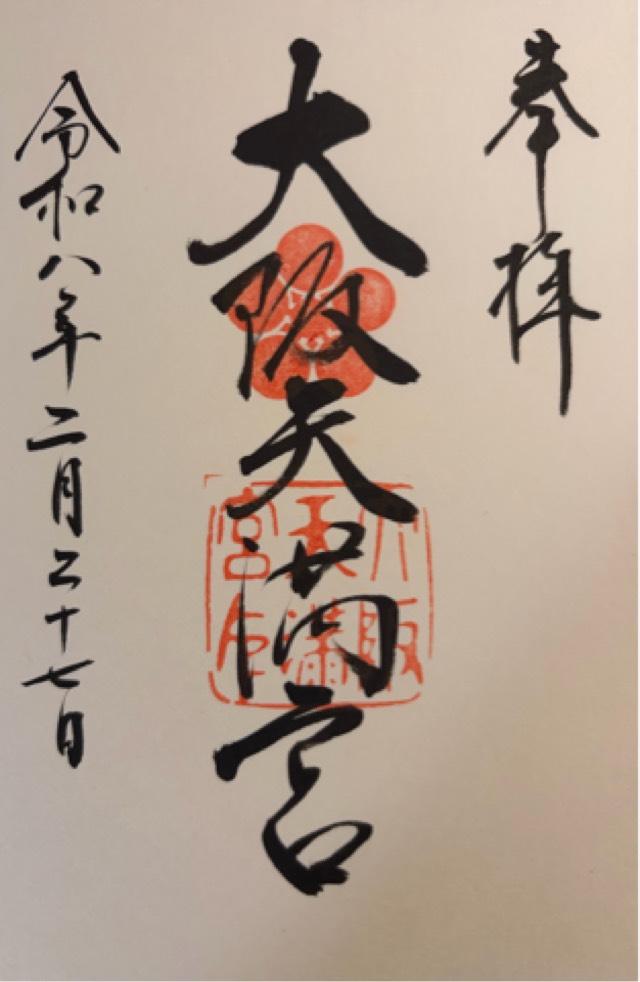 奉拝
大阪天満宮
大阪天満宮印
令和八年二月二十七日